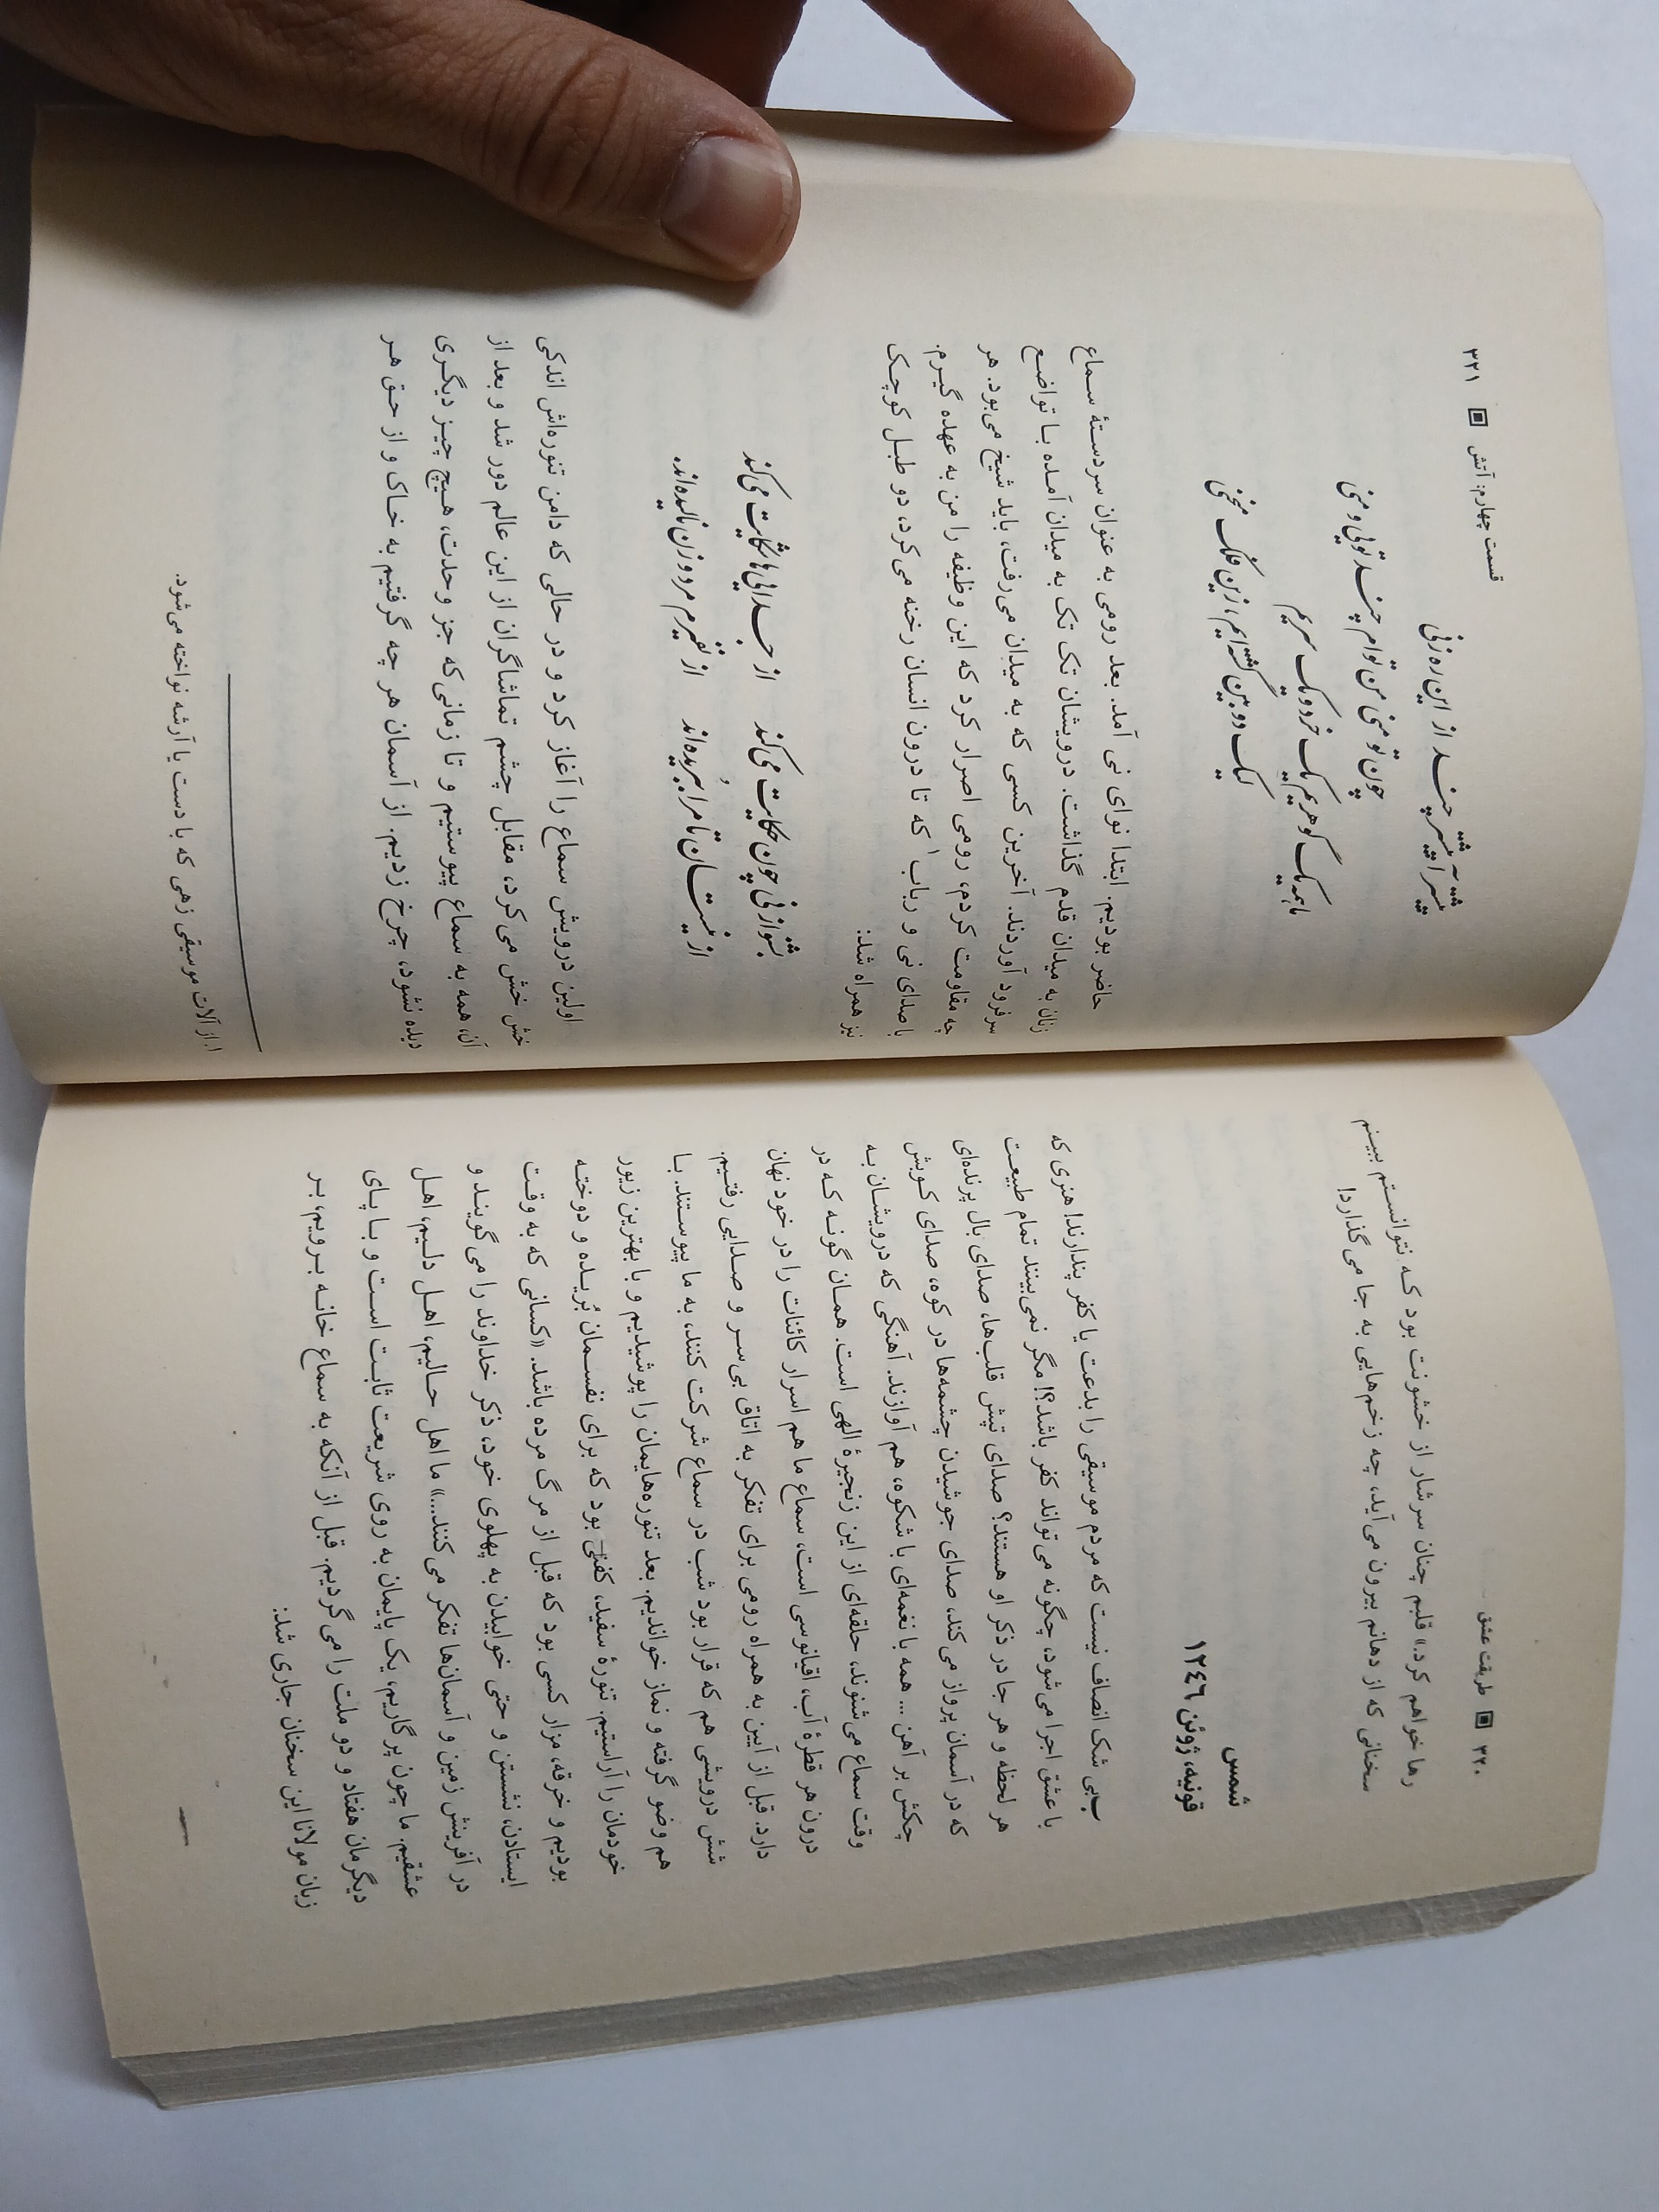 ۳۲۰ طریقت عشق
رها خواهم کرد.» قلبم چنان سرشار از خشونت بود که نتوانستم ببینم
سخنانی که از دهانم بیرون می‌آید، چه زخم‌هایی به جا می‌گذارد!
شمس
قونیه، ژوئن ١٢٤٦
ب‌بی شک انصاف نیست که مردم موسیقی را بدعت یا کفر پندارند! هنری که
با عشق اجرا می‌شود، چگونه می‌تواند کفر باشد؟! مگر نمی‌بینند تمام طبیعت
هر لحظه و هر جا در ذکر او هستند؟ صدای تپش قلب‌ها، صدای بال پرنده‌ای
که در آسمان پرواز می‌کند، صدای جوشیدن چشمه‌ها در کوه، صدای کوبش
چکش بر آهن ... همه با نغمه‌ای با شکوه، هم آوازند. آهنگی که درویشان به
وقت سماع می‌شنوند، حلقه‌ای از این زنجیرهٔ الهی است. همان گونه که در
درون هر قطرهٔ آب، اقیانوسی است، سماع ما هم اسرار کائنات را در خود نهان
دارد. قبل از آیین به همراه رومی برای تفکر به اتاق بی‌سر و صدایی رفتیم.
شش درویشی هم که قرار بود شب در سماع شرکت کنند، به ما پیوستند. با
هم وضو گرفته و نماز خواندیم. بعد تنوره‌هایمان را پوشیدیم و با بهترین زیور
خودمان را آراستیم. تنورهٔ سفید، کفنی بود که برای نفسمان بُریده و دوخته
بودیم و خرقه، مزار کسی بود که قبل از مرگ مرده باشد. «کسانی که به وقت
ایستادن، نشستن و حتی خوابیدن به پهلوی خود، ذکر خداوند را می‌گویند و
در آفرینش زمین و آسمان‌ها تفکر می‌کنند...» ما اهل حالیم، اهل دلیم، اهل
عشقیم. ما چون پرگاریم، یک پایمان به روی شریعت ثابت است و با پای
دیگرمان هفتاد و دو ملت را می‌گردیم. قبل از آنکه به سماع خانه برویم، بر
زبان مولانا این سخنان جاری شد:
قسمت چهارم: آتش ۳۲۱
پیشتر آ پیشتر چند از این ره زنی
چون تو منی من توام چند تویی و منی
ما همه یک گوهریم یک خرد و یک سریم
لیک دو بین گشته‌ایم، زین فلک منحنی
حاضر بودیم. ابتدا نوای نی آمد. بعد رومی به عنوان سردستهٔ سماع
زنان به میدان قدم گذاشت. درویشان تک تک به میدان آمده با تواضع
سر فرود آوردند. آخرین کسی که به میدان می‌رفت، باید شیخ می‌بود. هر
چه مقاومت کردم، رومی اصرار کرد که این وظیفه را من به عهده گیرم.
با صدای نی و رباب۱ که تا درون انسان رخنه می‌کرد، دو طبل کوچک
نیز همراه شد:
بشنو از نی چون حکایت می‌کند از جدایی‌ها شکایت می‌کند
از نیستان تا مرا ببریده‌اند از نفیرم مرد و زن نالیده‌اند.
اولین درویش سماع را آغاز کرد و در حالی که دامن تنوره‌اش اندکی
خش خش می‌کرد، مقابل چشم تماشاگران از این عالم دور شد و بعد از
آن، همه به سماع پیوستیم و تا زمانی که جز وحدت، هیچ چیز دیگری
دیده نشود، چرخ زدیم. از آسمان هر چه گرفتیم به خاک و از حق هر
۱. از آلات موسیقی زهی که با دست یا آرشه نواخته می‌شود.